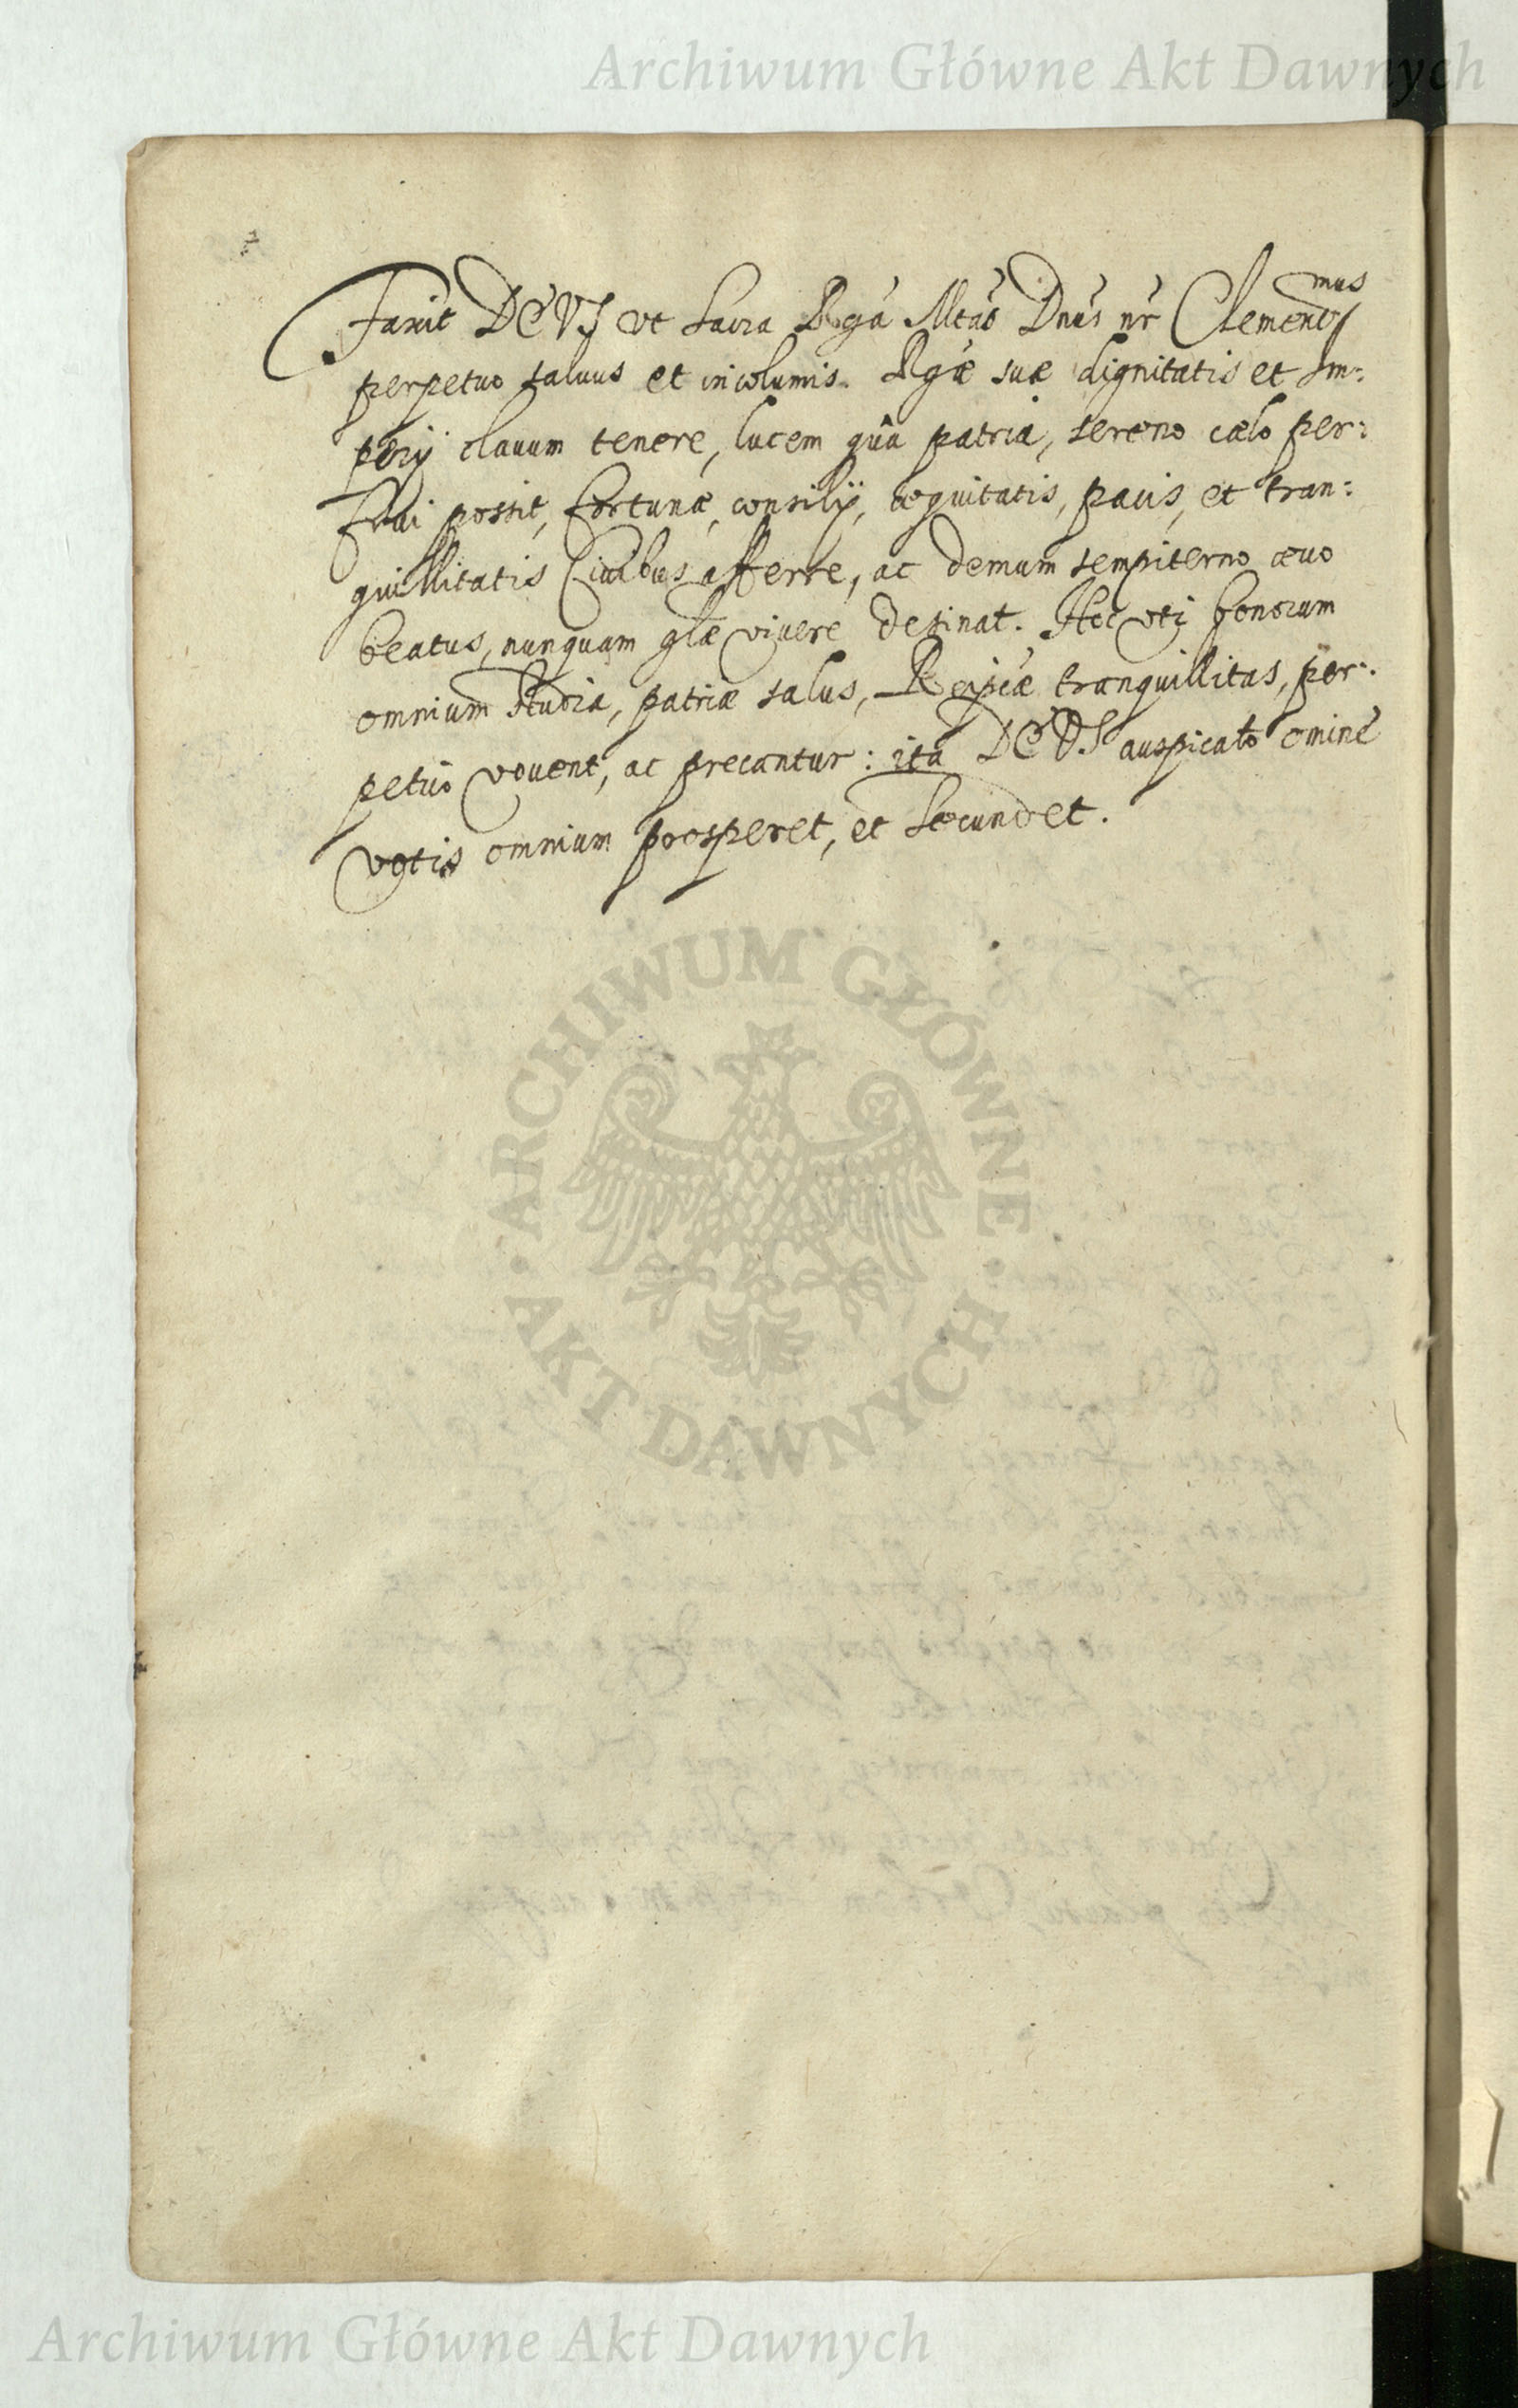 Archiwum Główne Akt Dawnych
Faxit DEVS vt Sacra Rgá Mtás Dnús nr̃ Clementsmus
perpetuo saluus et incolumis. Rgiæ suæ dignitatis et Im:
perij clauum tenere, lucem quâ patria, sereno cælo per:
frui possit, fortunæ, consilij, æquitatis, pacis, et tran:
quillitatis Ciuibus afferre, ac demum sempiterno æuo
beatus, nunquam glæ viuere desinat. Hoc vti bonorum
omnium studia, patriæ salus, Reipcæ tranquillitas, per:
petuò vouent, ac precantur: ita DEVS auspicato omine
votis omnium prosperet, et secundet.
ARCHIWUM GŁÓWNE • AKT DAWNYCH •
Archiwum Główne Akt Dawnych